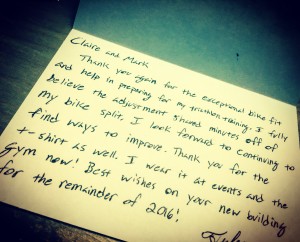 Claire and Mark
Thank you again for the exceptional bike fit
and help in preparing for my triathlon training. I fully
believe the adjustment shaved minutes off of
my bike split. I look forward to continuing to
find ways to improve. Thank you for the
t-shirt as well. I wear it at events and the
Gym now! Best wishes on your new building
for the remainder of 2016!